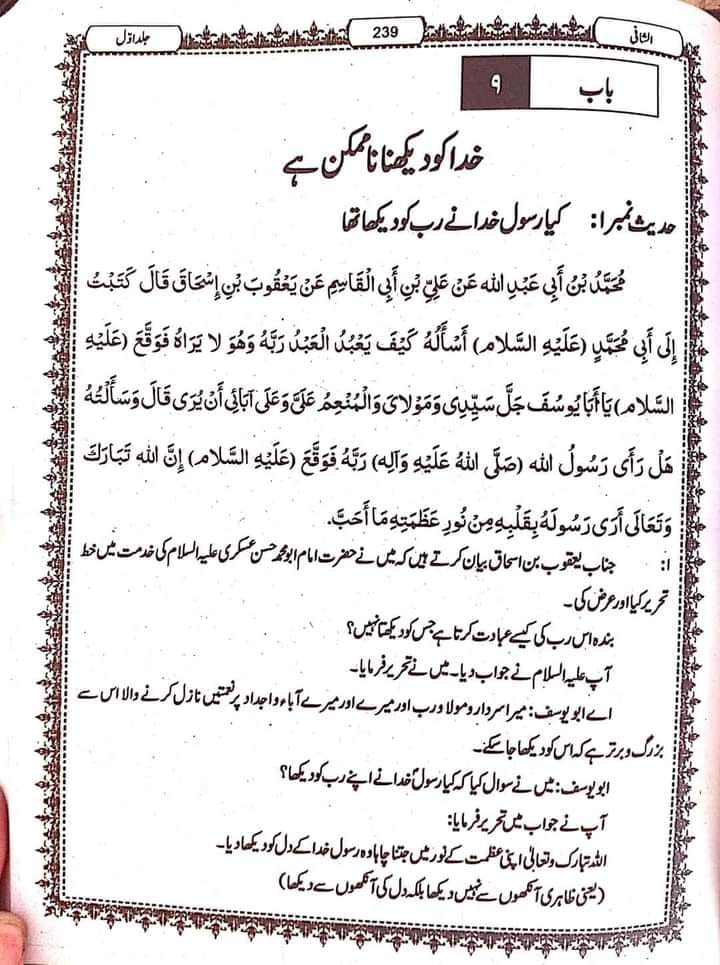 الشافی
239
جلد اوّل
باب ۹
خدا کو دیکھنا ناممکن ہے
حدیث نمبر ۱: کیا رسول خدا نے رب کو دیکھا تھا
مُحَمَّدُ بْنُ أَبِي عَبْدِ الله عَنْ عَلِيِّ بْنِ أَبِي الْقَاسِمِ عَنْ يَعْقُوبَ بْنِ إِسْحَاقَ قَالَ كَتَبْتُ
إِلَى أَبِي مُحَمَّدٍ (عَلَيْهِ السَّلام) أَسْأَلُهُ كَيْفَ يَعْبُدُ الْعَبْدُ رَبَّهُ وَهُوَ لا يَرَاهُ فَوَقَّعَ (عَلَيْهِ
السَّلام) يَا أَبَا يُوسُفَ جَلَّ سَيِّدِي وَمَوْلايَ وَالْمُنْعِمُ عَلَيَّ وَعَلَى آبَائِي أَنْ يُرَى قَالَ وَسَأَلْتُهُ
هَلْ رَأَى رَسُولُ الله (صَلَّى اللهُ عَلَيْهِ وَآلِه) رَبَّهُ فَوَقَّعَ (عَلَيْهِ السَّلام) إِنَّ الله تَبَارَكَ
وَتَعَالَى أَرَى رَسُولَهُ بِقَلْبِهِ مِنْ نُورِ عَظَمَتِهِ مَا أَحَبَّ.
۱: جناب یعقوب بن اسحاق بیان کرتے ہیں کہ میں نے حضرت امام ابو محمد حسن عسکری علیہ السلام کی خدمت میں خط
تحریر کیا اور عرض کی۔
بندہ اس رب کی کیسے عبادت کرتا ہے جس کو دیکھتا نہیں؟
آپ علیہ السلام نے جواب دیا۔ میں نے تحریر فرمایا۔
اے ابو یوسف: میرا سردار و مولا و رب اور میرے اور میرے آباء و اجداد پر نعمتیں نازل کرنے والا اس سے
بزرگ و برتر ہے کہ اس کو دیکھا جا سکے۔
ابو یوسف: میں نے سوال کیا کہ کیا رسولؐ خدا نے اپنے رب کو دیکھا؟
آپ نے جواب میں تحریر فرمایا:
اللہ تبارک و تعالیٰ اپنی عظمت کے نور میں جتنا چاہا وہ رسول خدا کے دل کو دیکھا دیا۔
(یعنی ظاہری آنکھوں سے نہیں دیکھا بلکہ دل کی آنکھوں سے دیکھا)